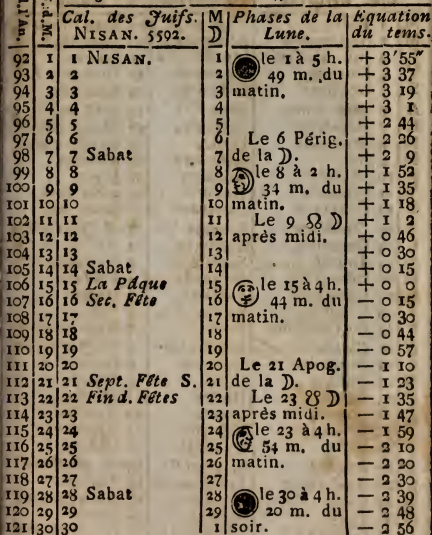 Cal. des Juifs. M Phases de la Equation
NISAN. 5592. ☽ Lune. du tems.
92 1 1 NISAN. 1 le 1 à 5 h. + 3'55"
93 2 2 2 49 m. du + 3 37
94 3 3 3 matin. + 3 19
95 4 4 4 + 3 1
96 5 5 5 + 2 44
97 6 6 6 Le 6 Périg. + 2 26
98 7 7 Sabat 7 de la ☽. + 2 9
99 8 8 8 le 8 à 2 h. + 1 52
100 9 9 9 34 m. du + 1 35
101 10 10 10 matin. + 1 18
102 11 11 11 Le 9 ☊ ☽ + 1 2
103 12 12 12 après midi. + 0 46
104 13 13 13 + 0 30
105 14 14 Sabat 14 + 0 15
106 15 15 La Pâque 15 le 15 à 4 h. + 0 0
107 16 16 Sec. Fête 16 44 m. du — 0 15
108 17 17 17 matin. — 0 30
109 18 18 18 — 0 44
110 19 19 19 — 0 57
111 20 20 20 Le 21 Apog. — 1 10
112 21 21 Sept. Fête S. 21 de la ☽. — 1 23
113 22 22 Fin d. Fêtes 22 Le 23 ☋ ☽ — 1 35
114 23 23 23 après midi. — 1 47
115 24 24 24 le 23 à 4 h. — 1 59
116 25 25 25 54 m. du — 2 10
117 26 26 26 matin. — 2 20
118 27 27 27 — 2 30
119 28 28 Sabat 28 le 30 à 4 h. — 2 39
120 29 29 29 20 m. du — 2 48
121 30 30 1 soir. — 2 56